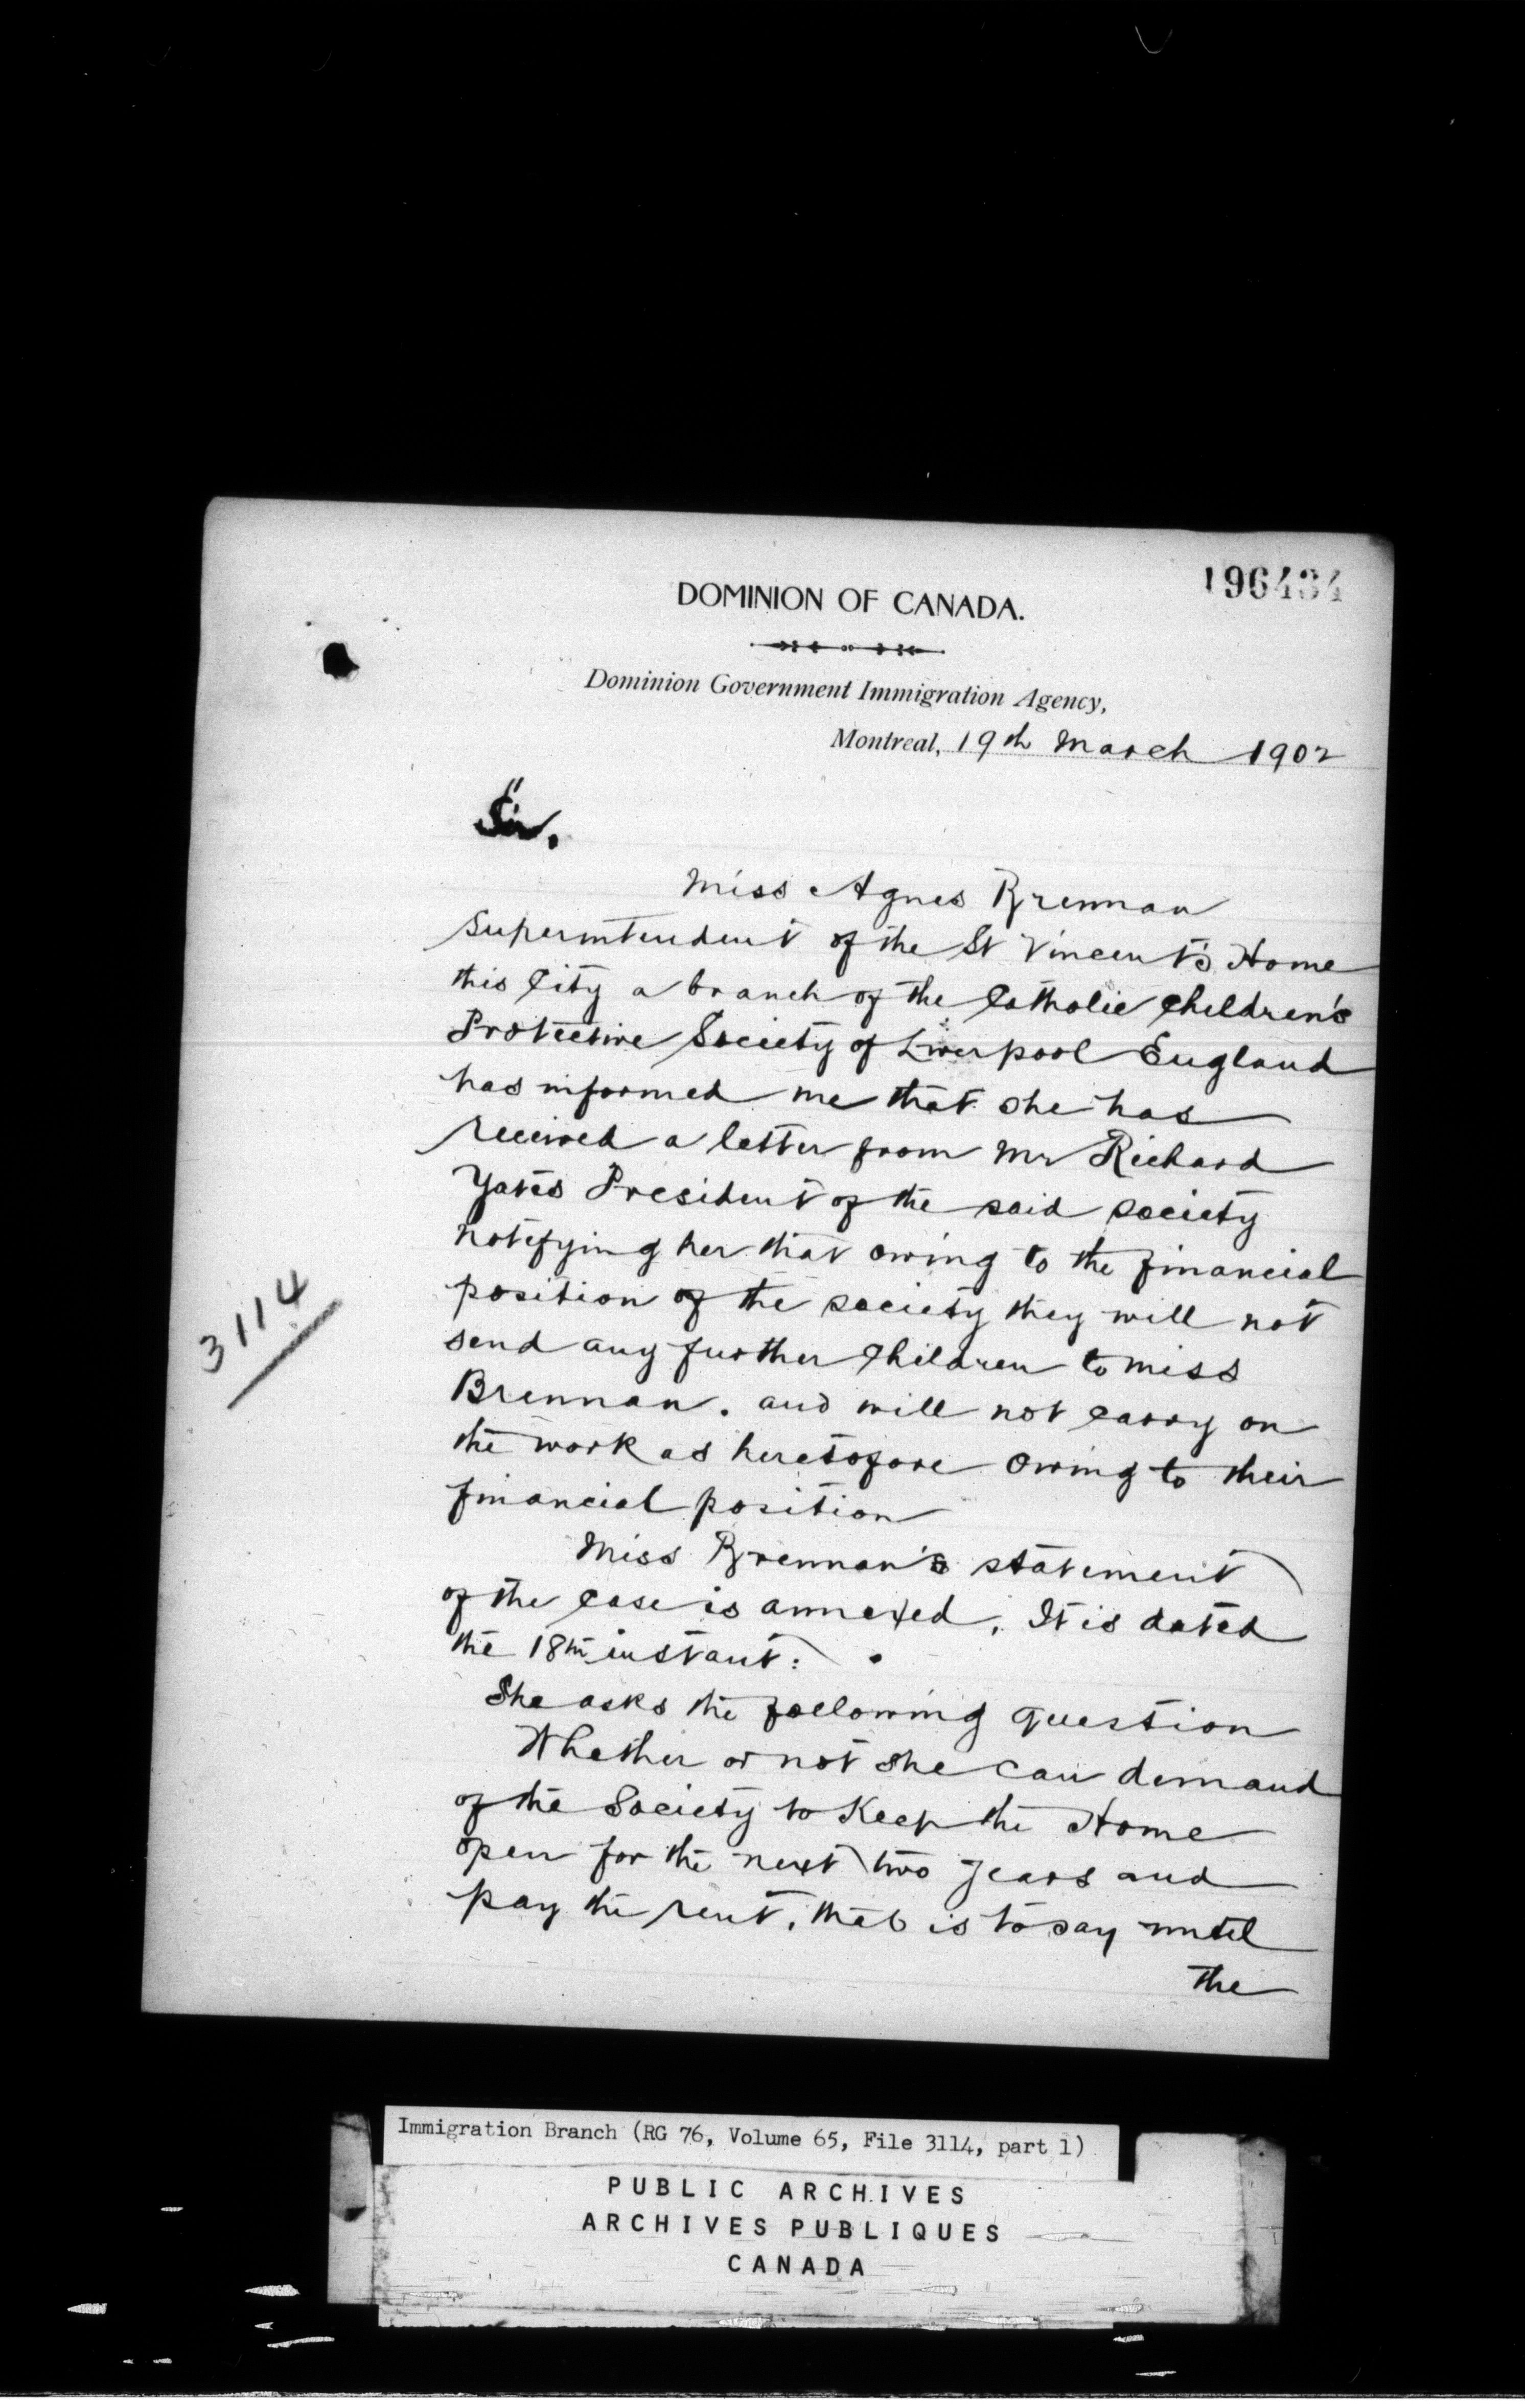 196434
DOMINION OF CANADA.
Dominion Government Immigration Agency,
Montreal, 19th March 1902
Sir.
Miss Agnes Brennan
Superintendent of the St Vincent's Home
this City a branch of the Catholic Children's
Protective Society of Liverpool England
has informed me that she has
received a letter from Mr Richard
Yates President of the said society
notifying her that owing to the financial
position of the society they will not
send any further Children to Miss
Brennan. and will not carry on
the work as heretofore owing to their
financial position
Miss Brennan's statement
of the case is annexed. It is dated
the 18th instant.
She asks the following question
Whether or not she can demand
of the Society to Keep the Home
open for the next two years and
pay the rent, that is to say until
the
3114
Immigration Branch (RG 76, Volume 65, File 3114, part 1)
PUBLIC ARCHIVES
ARCHIVES PUBLIQUES
CANADA